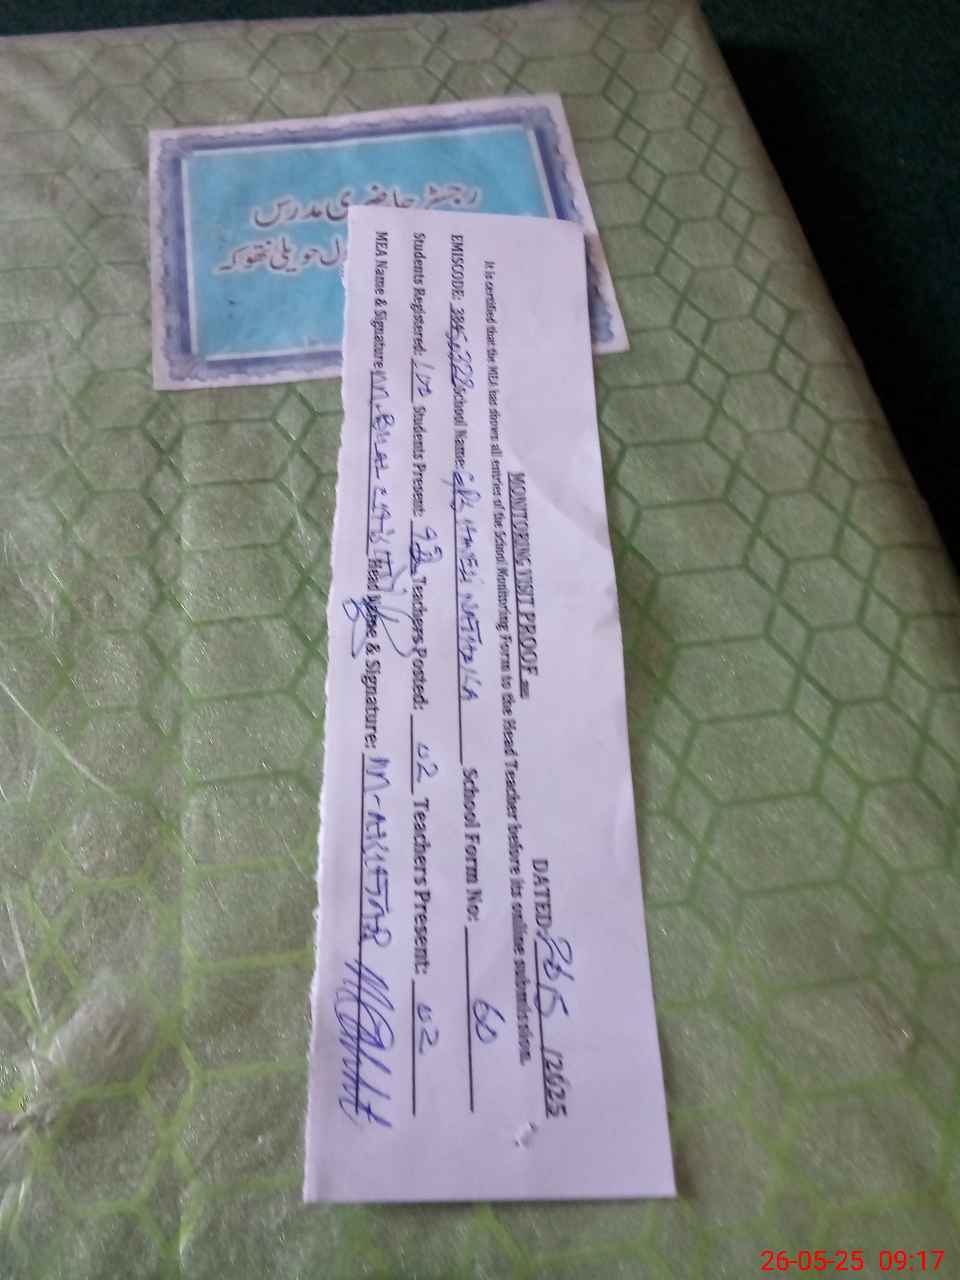 رجسٹر حاضری مدرس
حویلی نتھوکہ
MONITORING VISIT PROOF
DATED: 26/5/2025
It is certified that the MEA has shown all entries of the School Monitoring Form to the Head Teacher before its online submission.
EMISCODE: School Name: School Form No: 60
Students Registered: 102 Students Present: Teachers Posted: 02 Teachers Present: 02
MEA Name & Signature Head Name & Signature:
26-05-25 09:17